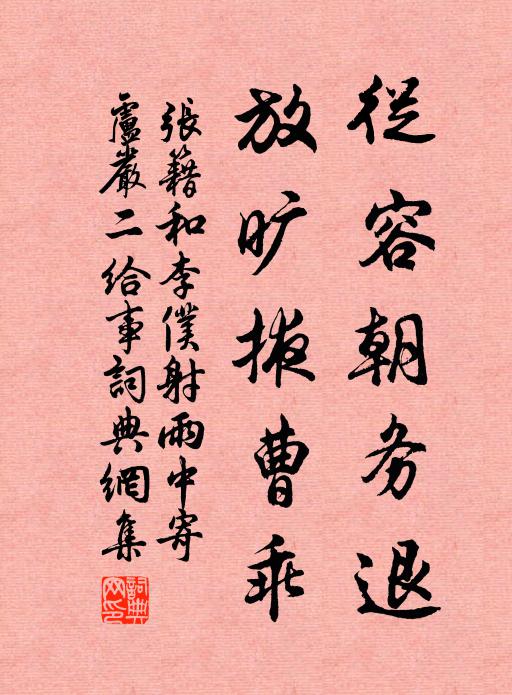 從容朝务退
放旷掖曹乖
張籍和李僕射雨中寄
盧嚴二给事詞典網集
詞典网印